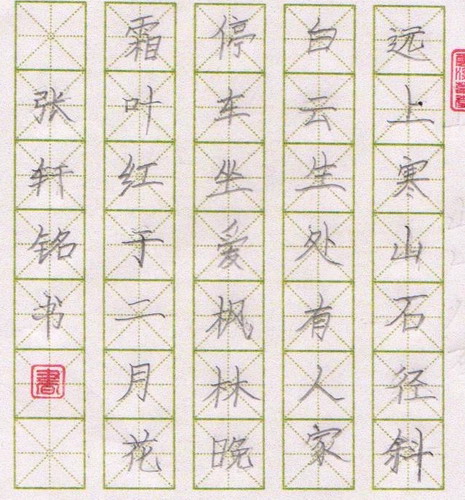 远上寒山石径斜
白云生处有人家
停车坐爱枫林晚
霜叶红于二月花
张轩铭书
書